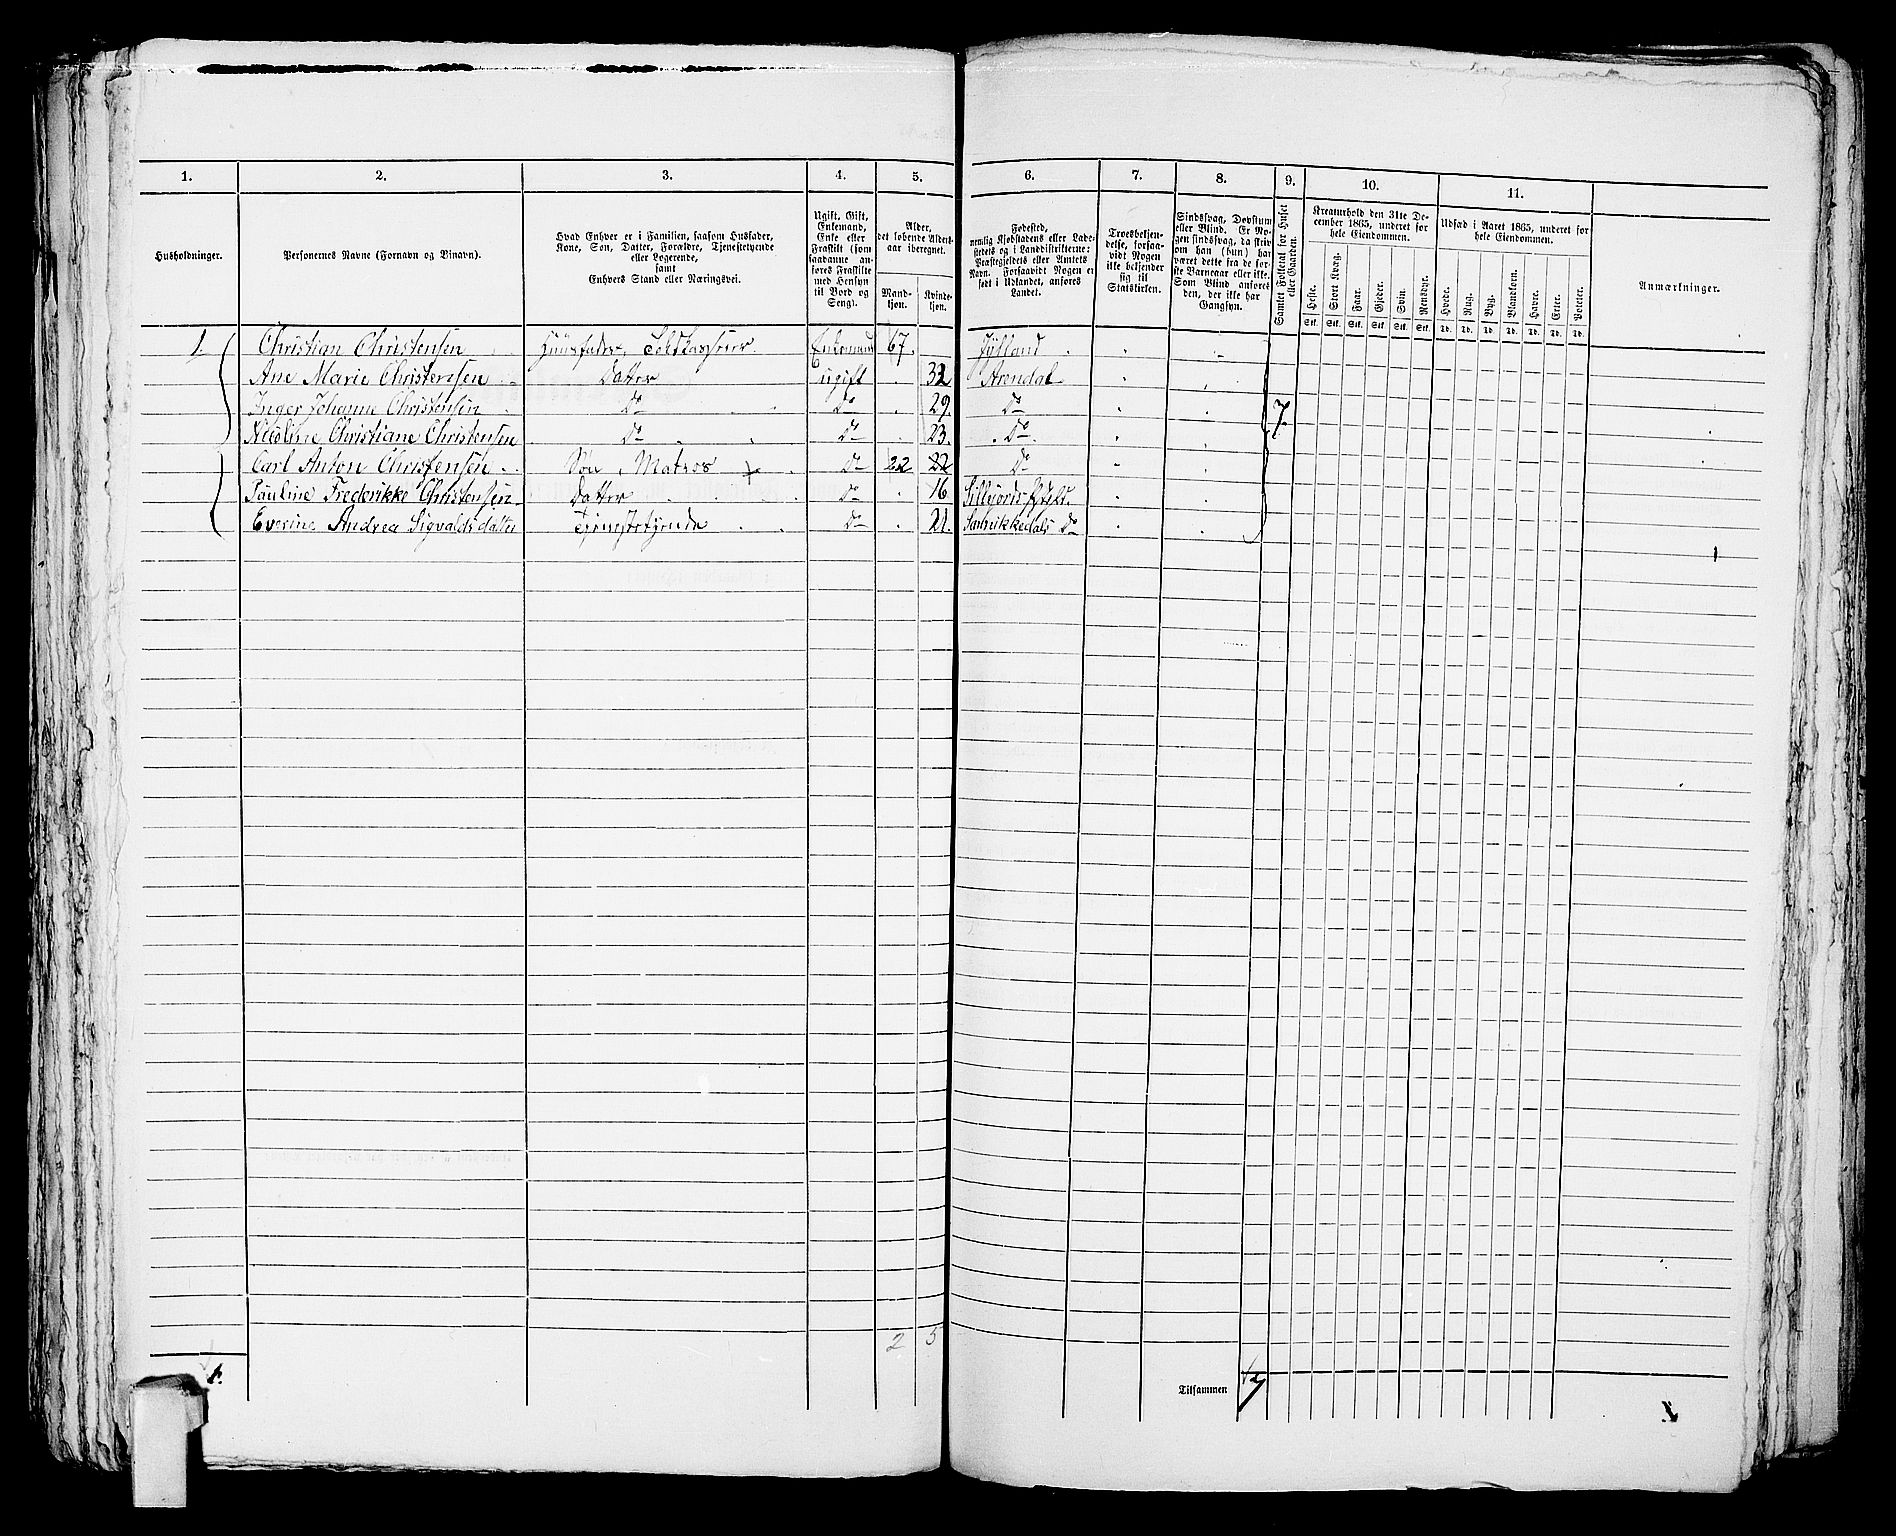 1. 2. 3. 4. 5. 6. 7. 8. 9. 10. 11.
Husholdninger.
Personernes Navne (Fornavn og Binavn).
Hvad Enhver er i Familien, saasom Husfader,
Kone, Søn, Datter, Forældre, Tjenestetyende
eller Logerende,
samt
Enhvers Stand eller Næringsvei.
Ugift, Gift,
Enkemand,
Enke eller
Fraskilt (som
saadanne an-
føres Fraskilte
med Hensyn
til Bord og
Seng).
Alder,
det løbende Alders-
aar iberegnet.
Mand-
kjøn.
Kvinde-
kjøn.
Fødested,
nemlig Kjøbstadens eller Lade-
stedets og i Landdistrikterne:
Præstegjeldets eller Amtets
Navn. Forsaavidt Nogen er
født i Udlandet, anføres
Landet.
Troesbekjen-
delse, forsaa-
vidt Nogen
ikke bekjender
sig til
Statskirken.
Sindssvag, Døvstum
eller Blind. Er No-
gen sindssvag, da skriv
om han (hun) har
været dette fra de før-
ste Barneaar eller ikke.
Som Blind anføres
den, der ikke har
Gangsyn.
Samlet Folketal for Huset
eller Gaarden.
Kreaturhold den 31te De-
cember 1865, underet for
hele Eiendommen.
Heste. Stort Kvæg. Faar. Gjeder. Svin. Rensdyr.
Stk. Stk. Stk. Stk. Stk. Stk.
Udsæd i Aaret 1865, underet for
hele Eiendommen.
Hvede. Rug. Byg. Blandkorn. Havre. Erter. Poteter.
Td. Td. Td. Td. Td. Td. Td.
Anmærkninger.
1 Christian Christensen Huusfader, Enkemand 67. Jylland
Ane Marie Christensen Datter ugift 32 Arendal
Inger Johanne Christensen Do Do 29. Do 7
Nicoline Christiane Christensen Do Do 23. Do
Carl Anton Christensen Søn, Matros Do 22 22 Do
Pauline Frederikke Christensen Datter Do 16
Everine Andrea Sigvaldsdatter Tjenestetyende Do 21. Do
2 5
1.
Tilsammen 7